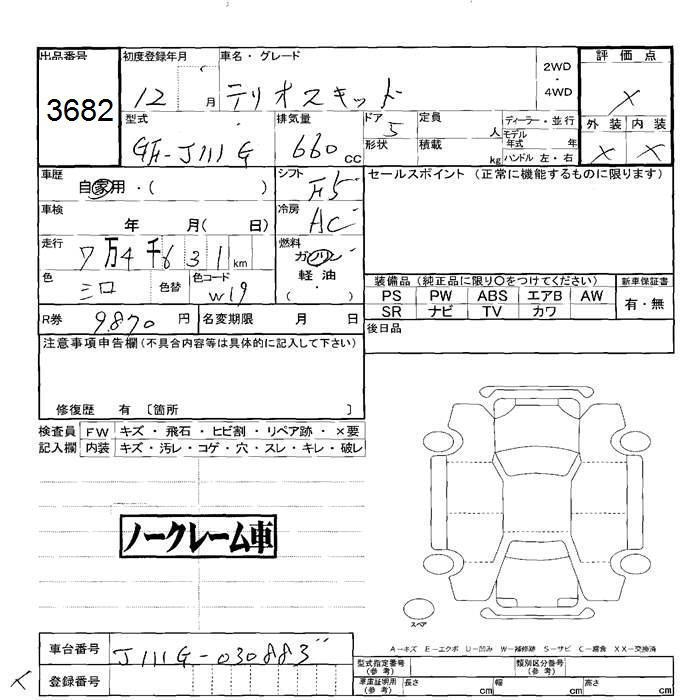 出品番号 初度登録年月 車名・グレード 2WD・4WD 評価点
3682 12 月 テリオスキッド ×
型式 排気量 ドア 定員 ディーラー・並行 外装 内装
GF-J111G 660 CC 5 人 モデル年式 年 × ×
形状 積載 kg ハンドル 左・右
車歴 自家用・( ) シフト F5 セールスポイント (正常に機能するものに限ります)
車検 年 月( 日) 冷房 AC
走行 7万4千631 km 燃料 ガソリン
軽油
( )
色 シロ 色替 色コード W19
装備品 (純正品に限り○をつけてください) 新車保証書
PS PW ABS エアB AW 有・無
SR ナビ TV カワ
R券 9,870 円 名変期限 月 日 後日品
注意事項申告欄(不具合内容等は具体的に記入して下さい)
修復歴 有 〔箇所 〕
検査員 FW キズ・飛石・ヒビ割・リペア跡・×要
記入欄 内装 キズ・汚レ・コゲ・穴・スレ・キレ・破レ
ノークレーム車
スペア
A−キズ E−エクボ U−凹み W−補修跡 S−サビ C−腐食 XX−交換済
車台番号 J111G-030883
登録番号
型式指定番号(参考) 類別区分番号(参考)
車庫証明用(参考) 長さ cm 幅 cm 高さ cm
×